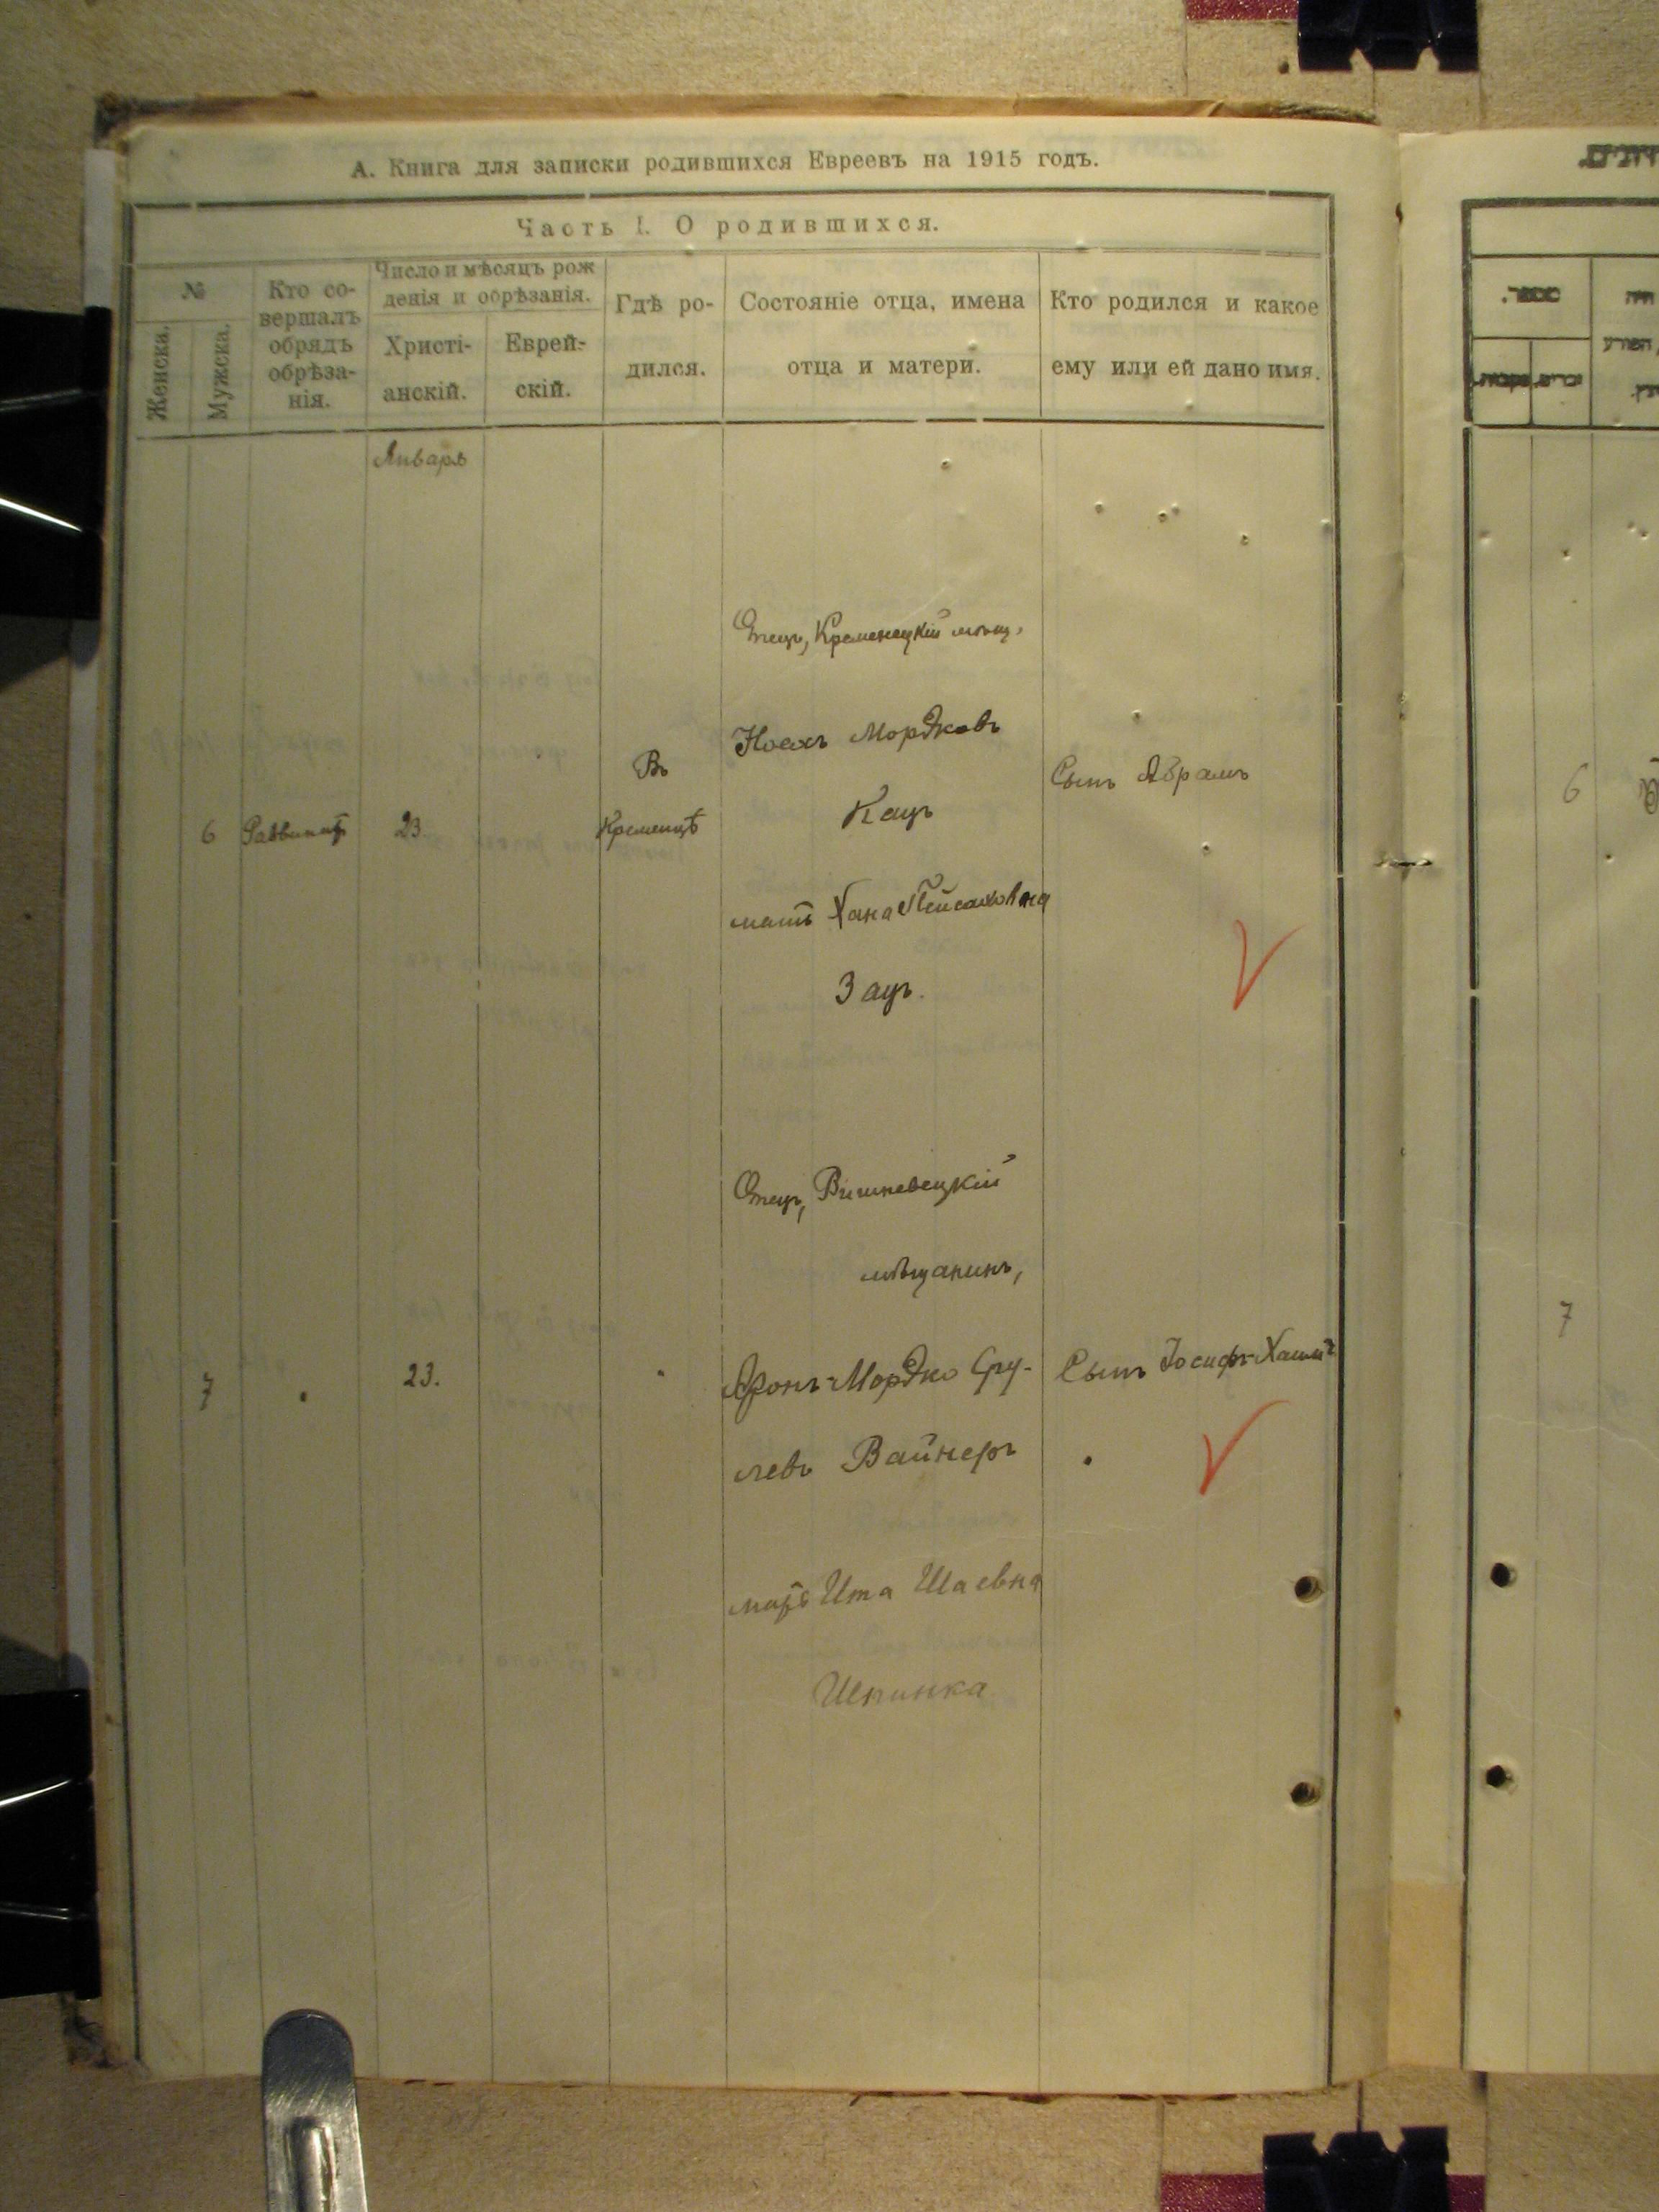 А. Книга для записки родившихся Евреевъ на 1915 годъ.
Часть I. О родившихся.
№
Женска.
Мужска.
Кто со-
вершалъ
обрядъ
обрѣза-
нія.
Число и мѣсяцъ рож
денія и обрѣзанія.
Христі-
анскій.
Еврей-
скій.
Гдѣ ро-
дился.
Состояніе отца, имена
отца и матери.
Кто родился и какое
ему или ей дано имя.
Января
6
23
Въ
Кременцѣ
Отецъ, Кременецкій мѣщ.
Мордковъ
Кацъ
мать Хана Пейсаховна
Зац.
Сынъ Абрамъ
7
23.
Отецъ, Вишневецкій
мѣщанинъ,
Аронъ-Мордко Сру-
левъ Вайнеръ
мать Ита Шаевна
Сынъ Іосифъ-Хаимъ
מספר.
זכרים.
נקבות.
6
7